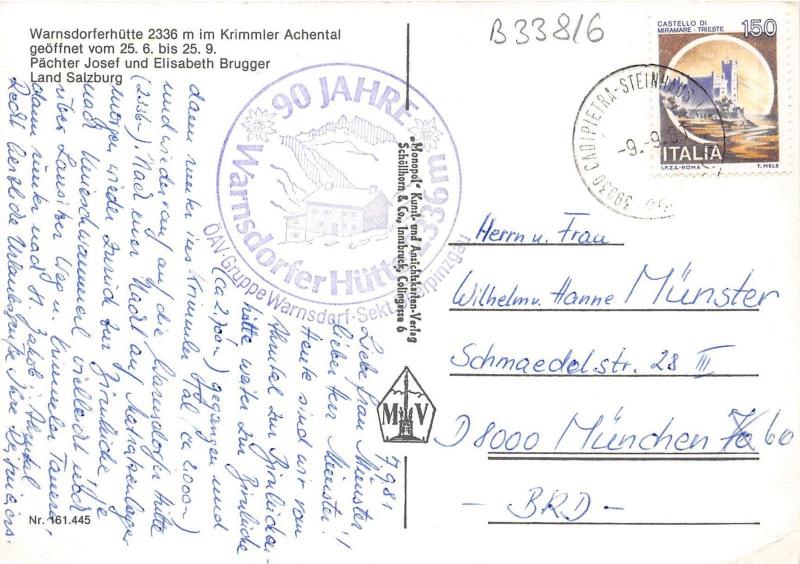 Warnsdorferhütte 2336 m im Krimmler Achental
geöffnet vom 25. 6. bis 25. 9.
Pächter Josef und Elisabeth Brugger
Land Salzburg
B338/6
CASTELLO DI
MIRAMARE - TRIESTE
150
ITALIA
I.P.Z.S.-ROMA
T. MELE
39030 CADIPIETRA-STEINHAUS
-9.-9.
90 JAHRE
Warnsdorfer Hütte 2336 m
ÖAV-Gruppe Warnsdorf-Sekt.
"Monopol" Kunst- und Ansichtskarten-Verlag
Schöllhorn & Co., Innsbruck, Colingasse 6
M V
Herrn u. Frau
Wilhelm u. Hanne Münster
Schmaedelstr. 28 III
D 8000 München 60
- BRD -
7.9.81
Liebe Frau Münster!
lieber Herr Münster!
Heute sind wir vom
Ahrntal zur Birnlücken-
hütte weiter zur Birnlücke
(ca 2700m) gegangen und
dann runter ins Krimmler Tal (ca 2000m)
und wieder auf auf die Warnsdorfer Hütte
(2336m). Nach einer Nacht auf Matratzenlager
morgen wieder zurück zur Birnlücke, je
nach Umschwammel vielleicht noch
über Lausitzer Weg u. Krimmler Tauern,
dann runter nach St. Jakob i. Ahrntal
Recht herzliche Urlaubsgrüße Ihre
Nr. 161.445